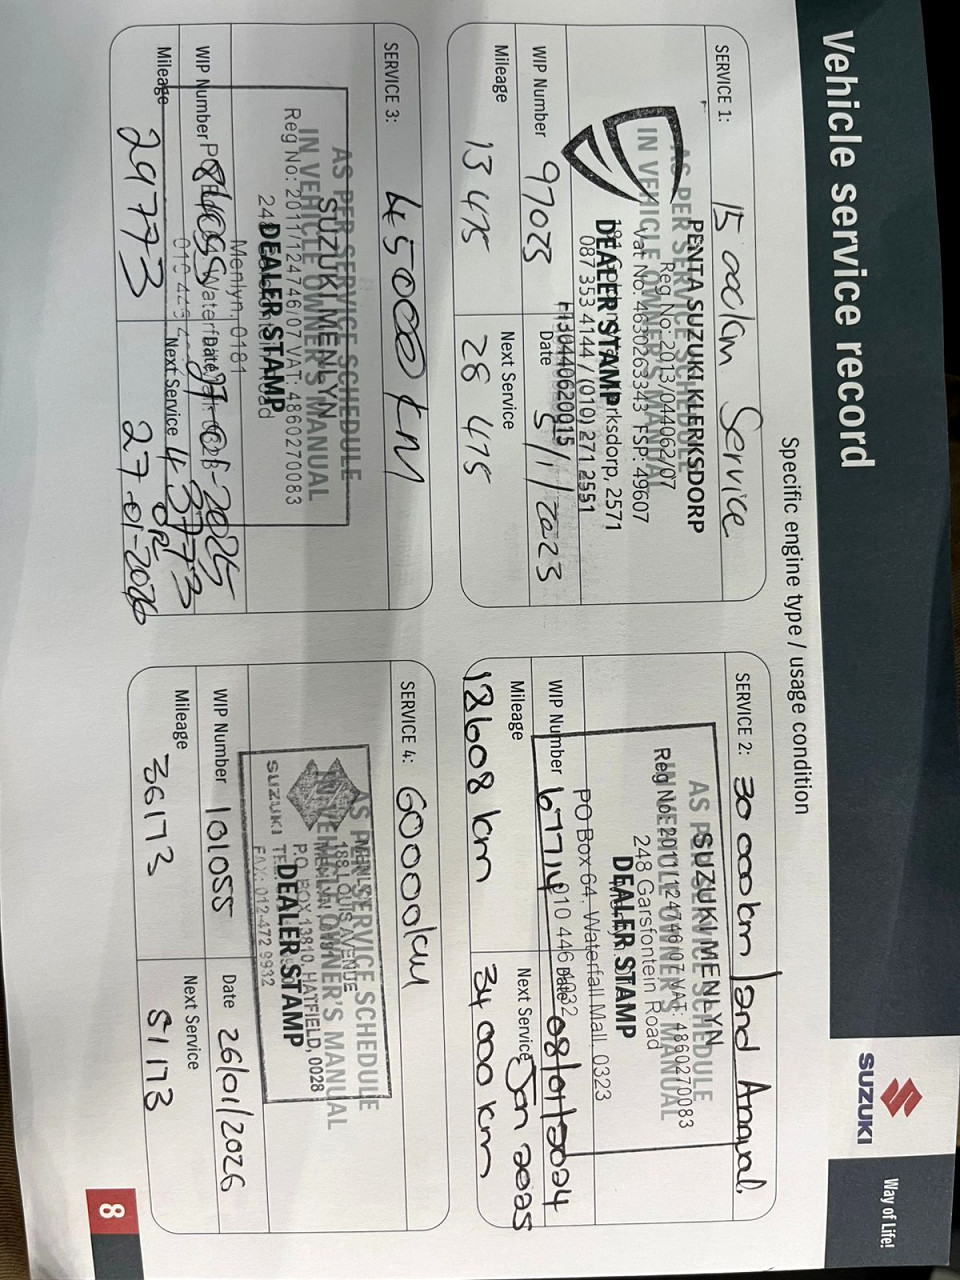 Vehicle service record
SUZUKI
Way of Life!
Specific engine type / usage condition
SERVICE 1: 15 000km Service
AS PER SERVICE SCHEDULE
IN VEHICLE OWNER'S MANUAL
DEALER STAMP
PENTA SUZUKI KLERKSDORP
Reg No: 2013/044062/07
Vat No: 4630263343 FSP: 49607
Klerksdorp, 2571
087 353 4144 / (010) 271 2551
WIP Number 97025
Date 5/1/2023
Mileage 13 475
Next Service 28 475
SERVICE 2: 30 000km / 2nd Annual.
AS PER SERVICE SCHEDULE
IN VEHICLE OWNER'S MANUAL
DEALER STAMP
SUZUKI MENLYN
Reg No: 2011/124746/07 VAT: 4860270083
248 Garsfontein Road
PO Box 64, Waterfall Mall, 0323
010 446 4032
WIP Number 67714
Date 08/01/2024
Mileage 18608 km
Next Service Jan 2025
34 000 km
SERVICE 3: 45000 KM
AS PER SERVICE SCHEDULE
IN VEHICLE OWNER'S MANUAL
DEALER STAMP
SUZUKI MENLYN
Reg No: 2011/124746/07 VAT: 4860270083
Menlyn, 0181
WIP Number 84055
Date -2025
Mileage 29773
Next Service 43773
OR
27-01-2026
SERVICE 4: 60000km
AS PER SERVICE SCHEDULE
IN VEHICLE OWNER'S MANUAL
DEALER STAMP
SUZUKI
188 LOUIS AVENUE
P.O. BOX 13810, HATFIELD, 0028
FAX: 012-472 9932
WIP Number 101055
Date 26/01/2026
Mileage 36173
Next Service 51173
8